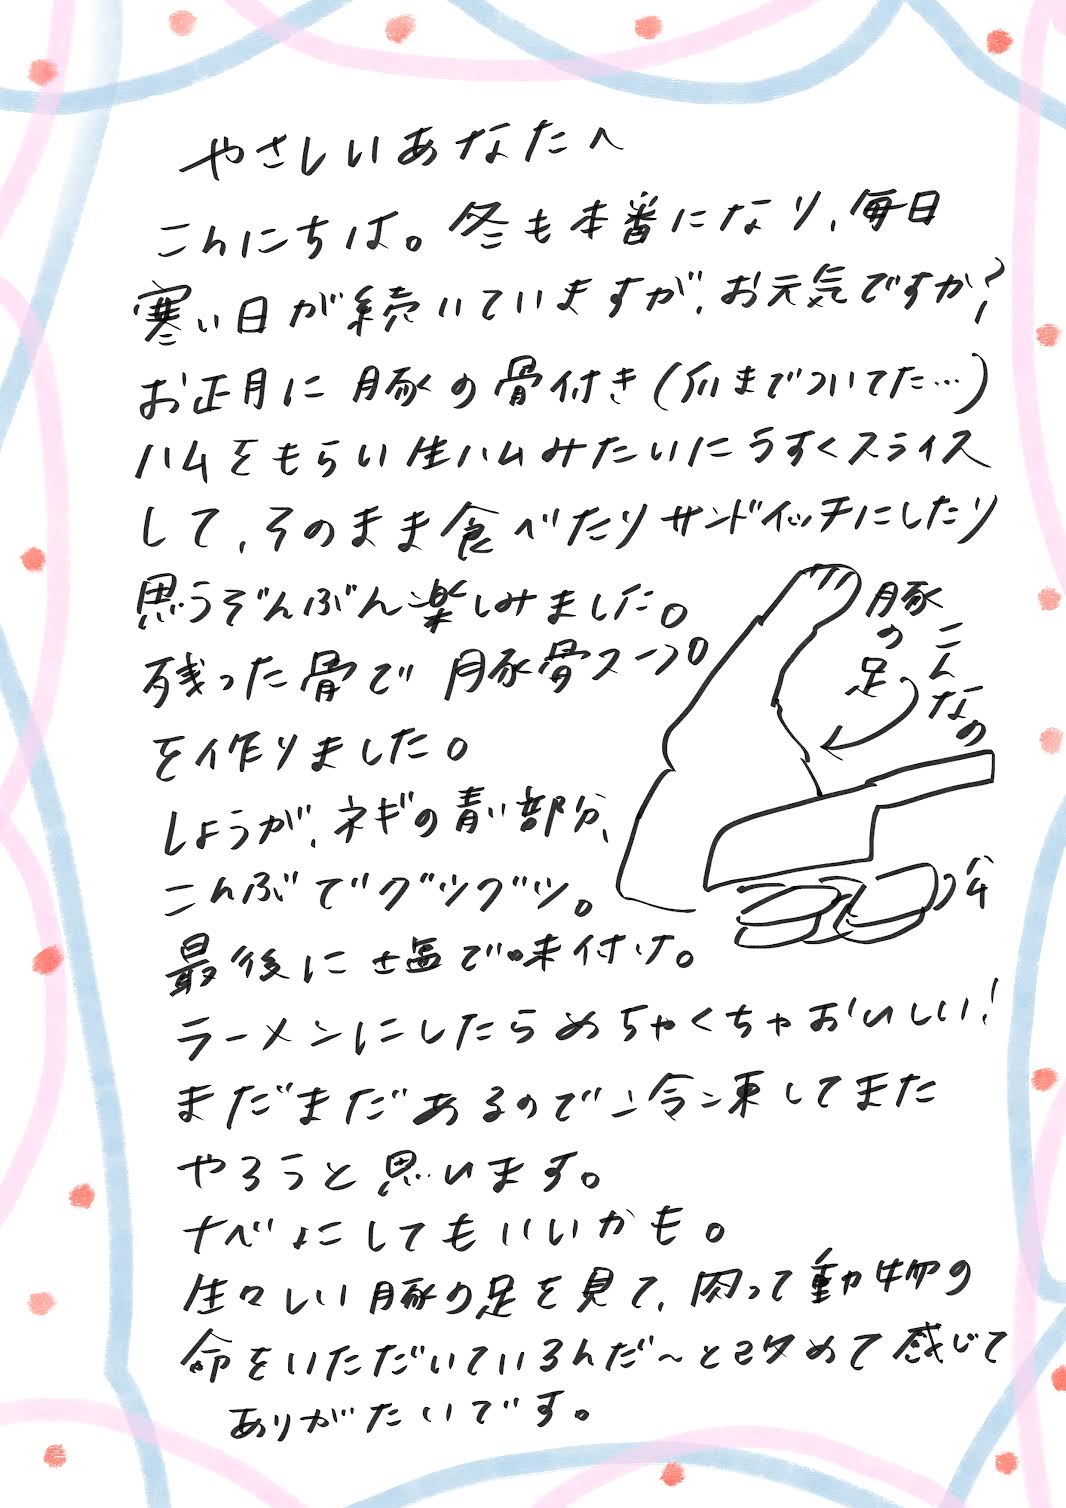 やさしいあなたへ
こんにちは。冬も本番になり、毎日
寒い日が続いていますが、お元気ですか?
お正月に豚の骨付き(爪までついてた…)
ハムをもらい生ハムみたいにうすくスライス
して、そのまま食べたりサンドイッチにしたり
思うぞんぶん楽しみました。
残った骨で豚骨スープ
を作りました。
しょうが、ネギの青い部分、
こんぶでグツグツ。
最後に塩で味付け。
ラーメンにしたらめちゃくちゃおいしい!
まだまだあるので冷凍してまた
やろうと思います。
ナベにしてもいいかも。
生々しい豚の足を見て、肉って動物の
命をいただいているんだ〜と改めて感じて
ありがたいです。
こんなの
豚の足